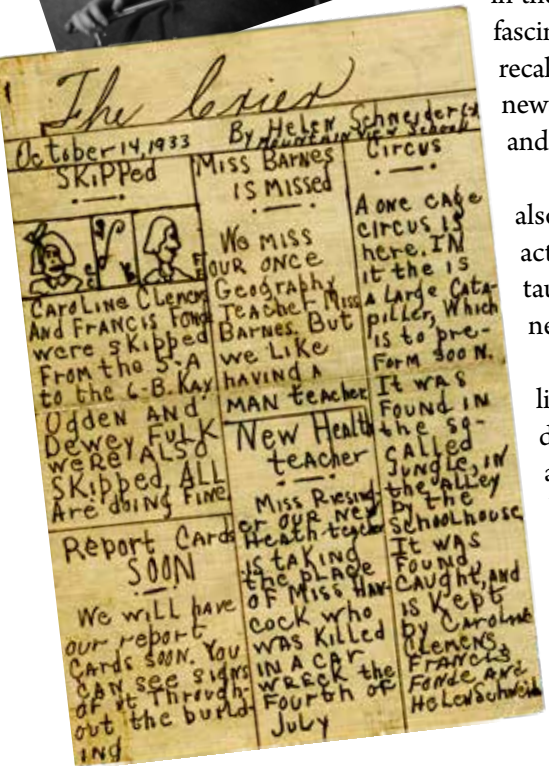 in the
fascin
recal
new
and
als
act
tau
ne
li
d
a
The Crier
October 14, 1933
By Helen Schneider
MOUNTAIN VIEW SCHOOL
SKiPPed
CAROLINE CLEMENS
AND FRANCIS FONDE
were skipped
From the 5-A
to the 6-B. KAY
OGden AND
Dewey FULK
weRe ALSO
SKipped, ALL
Are doing Fine.
Report Cards
SOON
We will have
our report
Cards soon. You
CAN see signs
of it Through-
out the build-
ing
Miss BARNes
is Missed
We miss
our once
Geography
Teacher Miss
BARNes. But
we Like
HAVING A
MAN teacher
New Health
teacher
Miss Riesing-
er our New
Heath teacher
is taking
the place
of Miss Han-
cock who
was killed
IN A CAR
WRECK the
Fourth of
July
Circus
A one cage
circus is
here. IN
it the is
a Large Cata-
piller, Which
is to pre-
form soon.
It was
Found in
the so-
CALLed
Jungle, in
the Alley
by the
schoolhouse
It was
Found,
Caught, and
is Kept
by Caroline
Clemens,
Francis
Fonde And
Helen Schneid